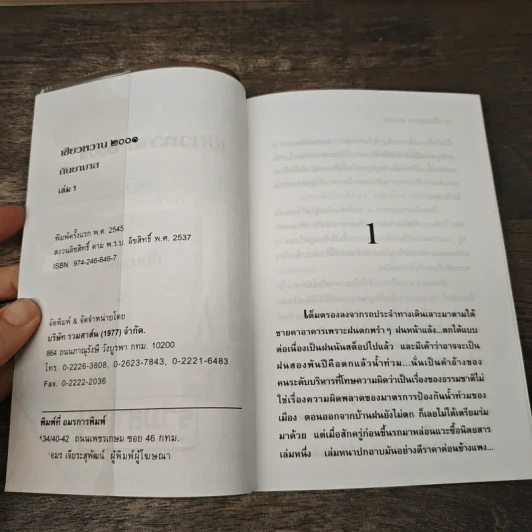 เขียวหวาน ๒๐๐๑
กันยามาส
เล่ม 1
พิมพ์ครั้งแรก พ.ศ. 2545
สงวนลิขสิทธิ์ ตาม พ.ร.บ. ลิขสิทธิ์ พ.ศ. 2537
ISBN 974-246-646-7
จัดพิมพ์ & จัดจำหน่ายโดย
บริษัท รวมสาส์น (1977) จำกัด.
864 ถนนภาณุรังษี วังบูรพา กทม. 10200
โทร. 0-2226-3808, 0-2623-7843, 0-2221-6483
Fax. 0-2222-2036
พิมพ์ที่ อมรการพิมพ์
134/40-42 ถนนเพชรเกษม ซอย 46 กทม.
อมร เจียระสุพัฒน์ ผู้พิมพ์ผู้โฆษณา
1
เต็มตรองลงจากรถประจำทางเดินเลาะมาตามใต้
ชายคาอาคารเพราะฝนตกพรำๆ ฝนหน้าแล้ง...ตกได้แบบ
ต่อเนื่องเป็นฝนนันสต็อปไปแล้ว และมีเค้าว่าอาจจะเป็น
ฝนสองพันปีคือตกแล้วน้ำท่วม...นั่นเป็นคำอ้างของ
คนระดับบริหารที่โทษความผิดว่าเป็นเรื่องของธรรมชาติไม่
ใช่เรื่องความผิดพลาดของมาตรการป้องกันน้ำท่วมของ
เมือง ตอนออกจากบ้านฝนยังไม่ตก ก็เลยไม่ได้เตรียมร่ม
มาด้วย แต่เมื่อสักครู่ก่อนขึ้นรถมาหล่อนแวะซื้อนิตยสาร
เล่มหนึ่ง เล่มหนาปกอาบมันอย่างดีราคาค่อนข้างแพง...